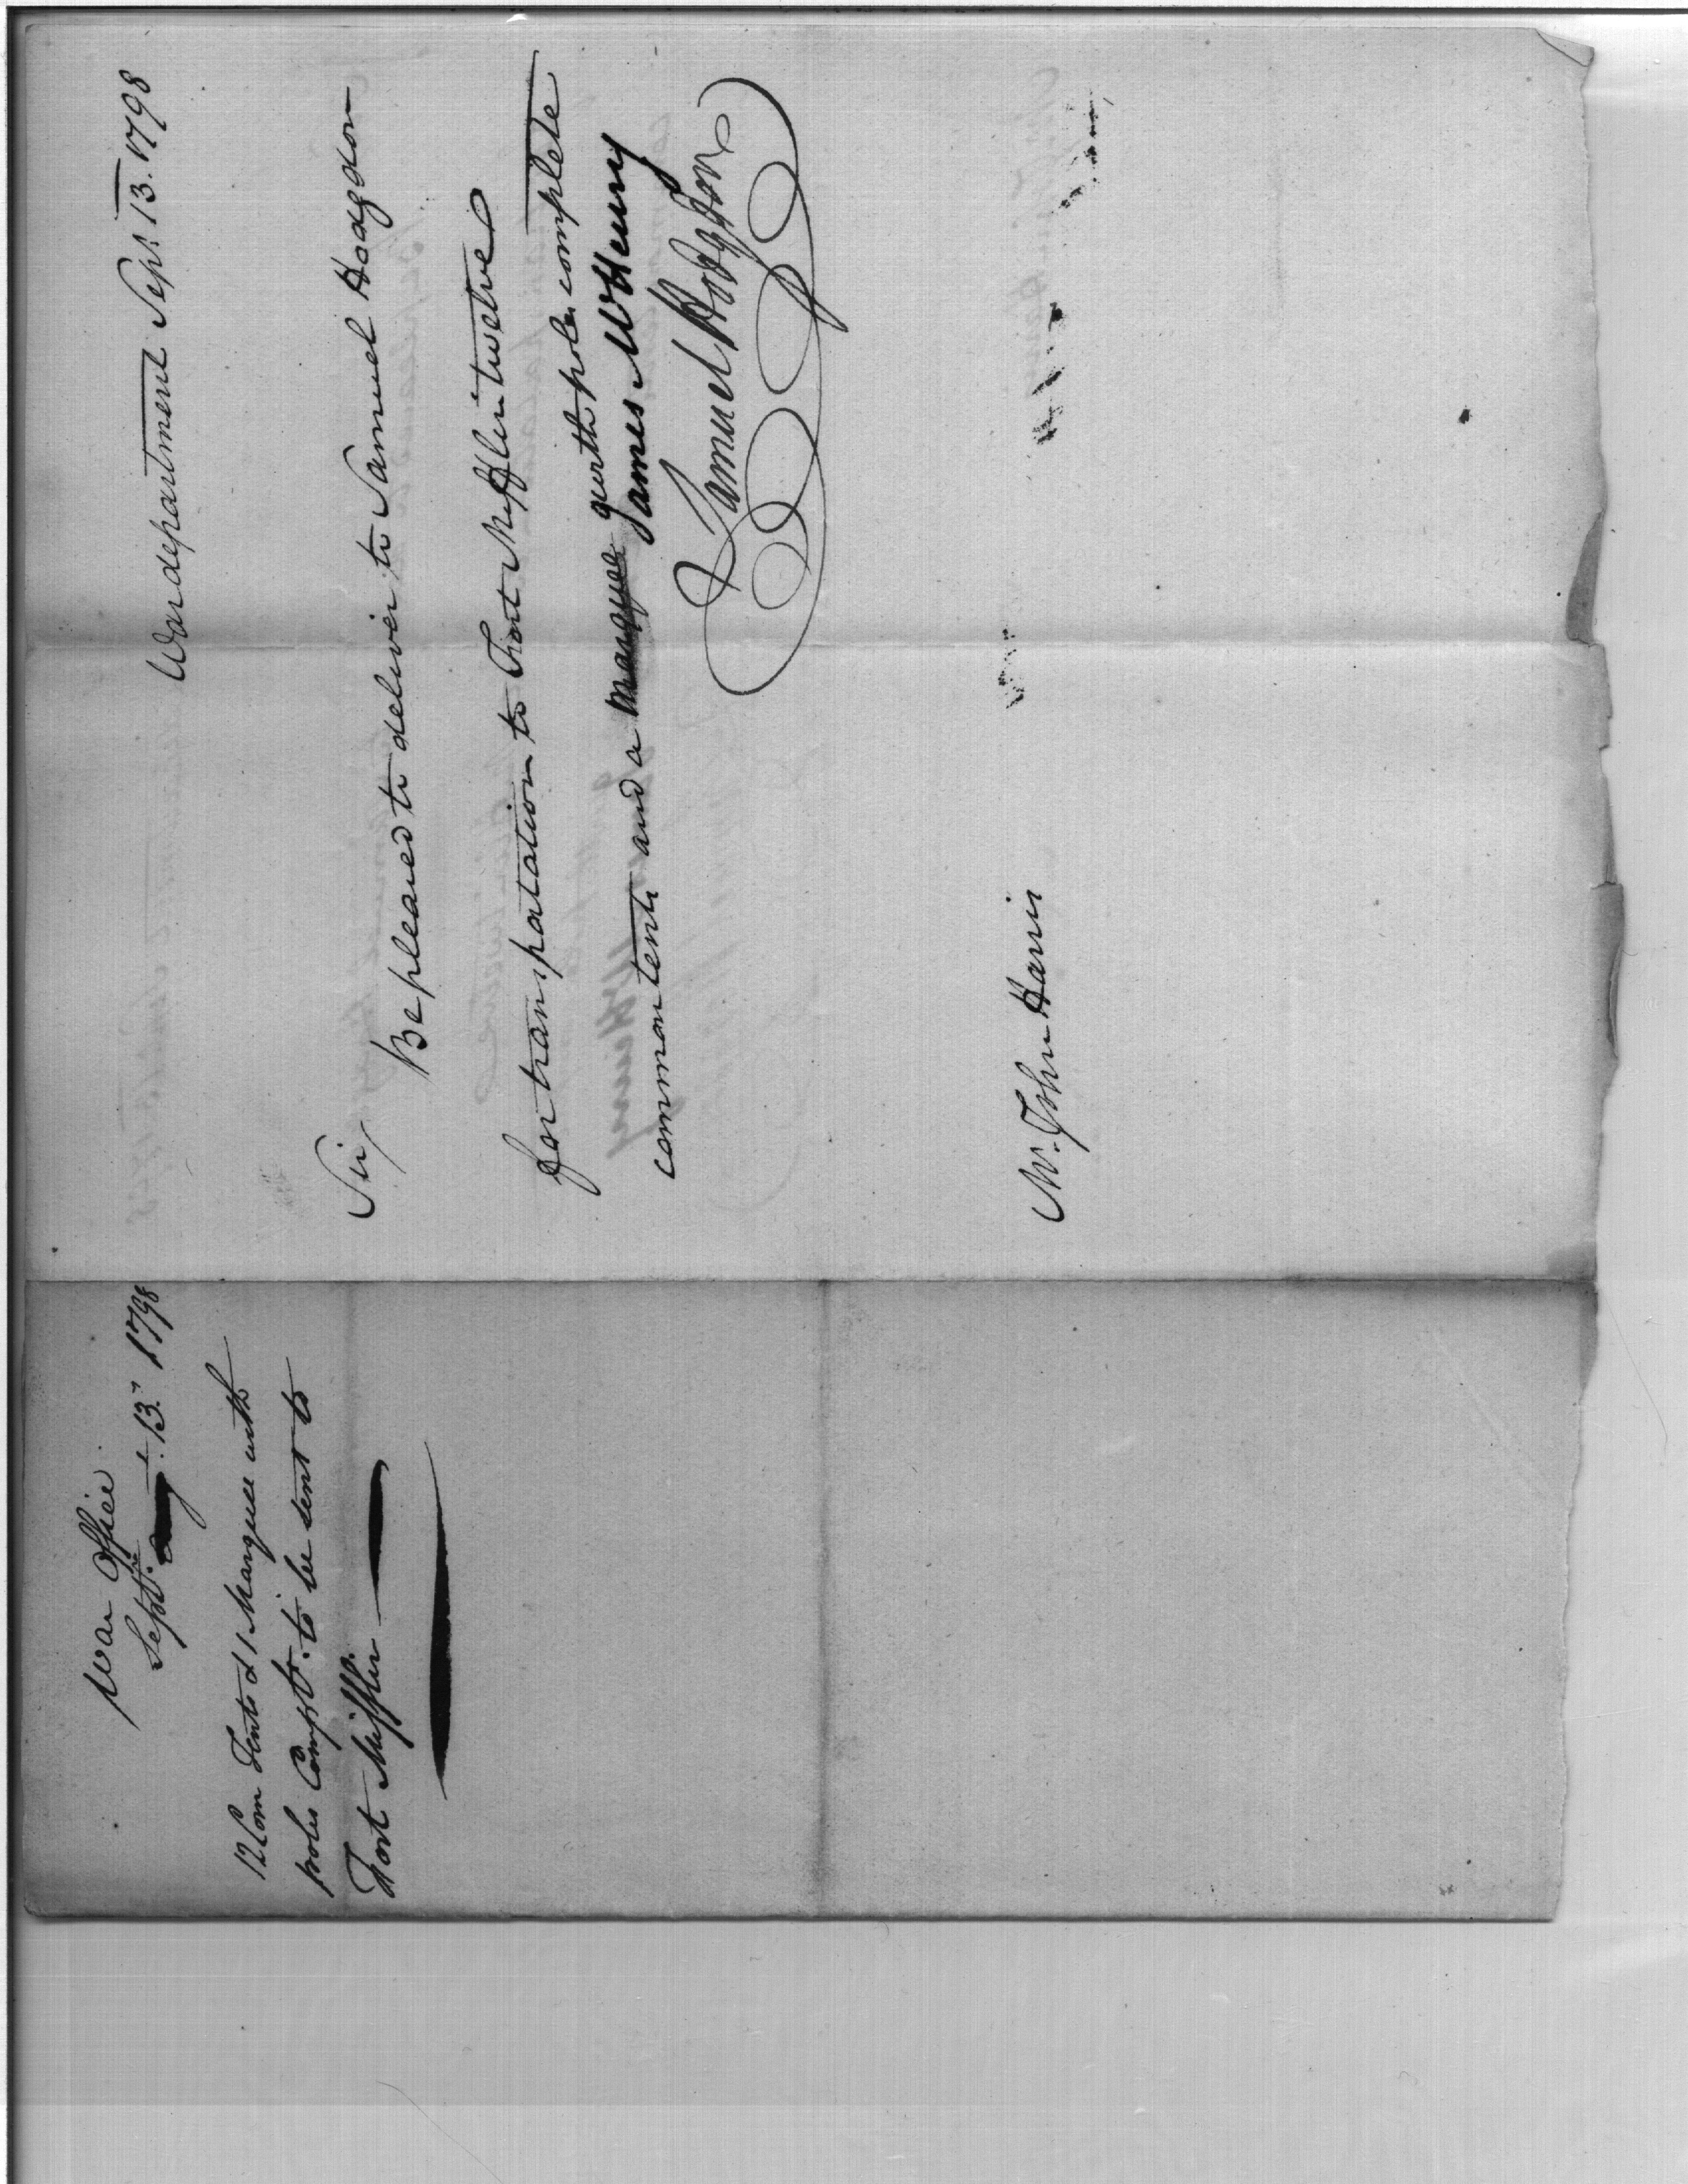 War department Sept. 13. 1798
Sir,
Be pleased to deliver to Samuel Hodgdon
for transportation to Fort Mifflin twelve
common tents and a marquee with poles complete
James McHenry
Samuel Hodgdon
Mr. John Harris
War Office
Septr. 13th 1798
12 Com Tents & 1 Marquee with
poles Compt. to be sent to
Fort Mifflin